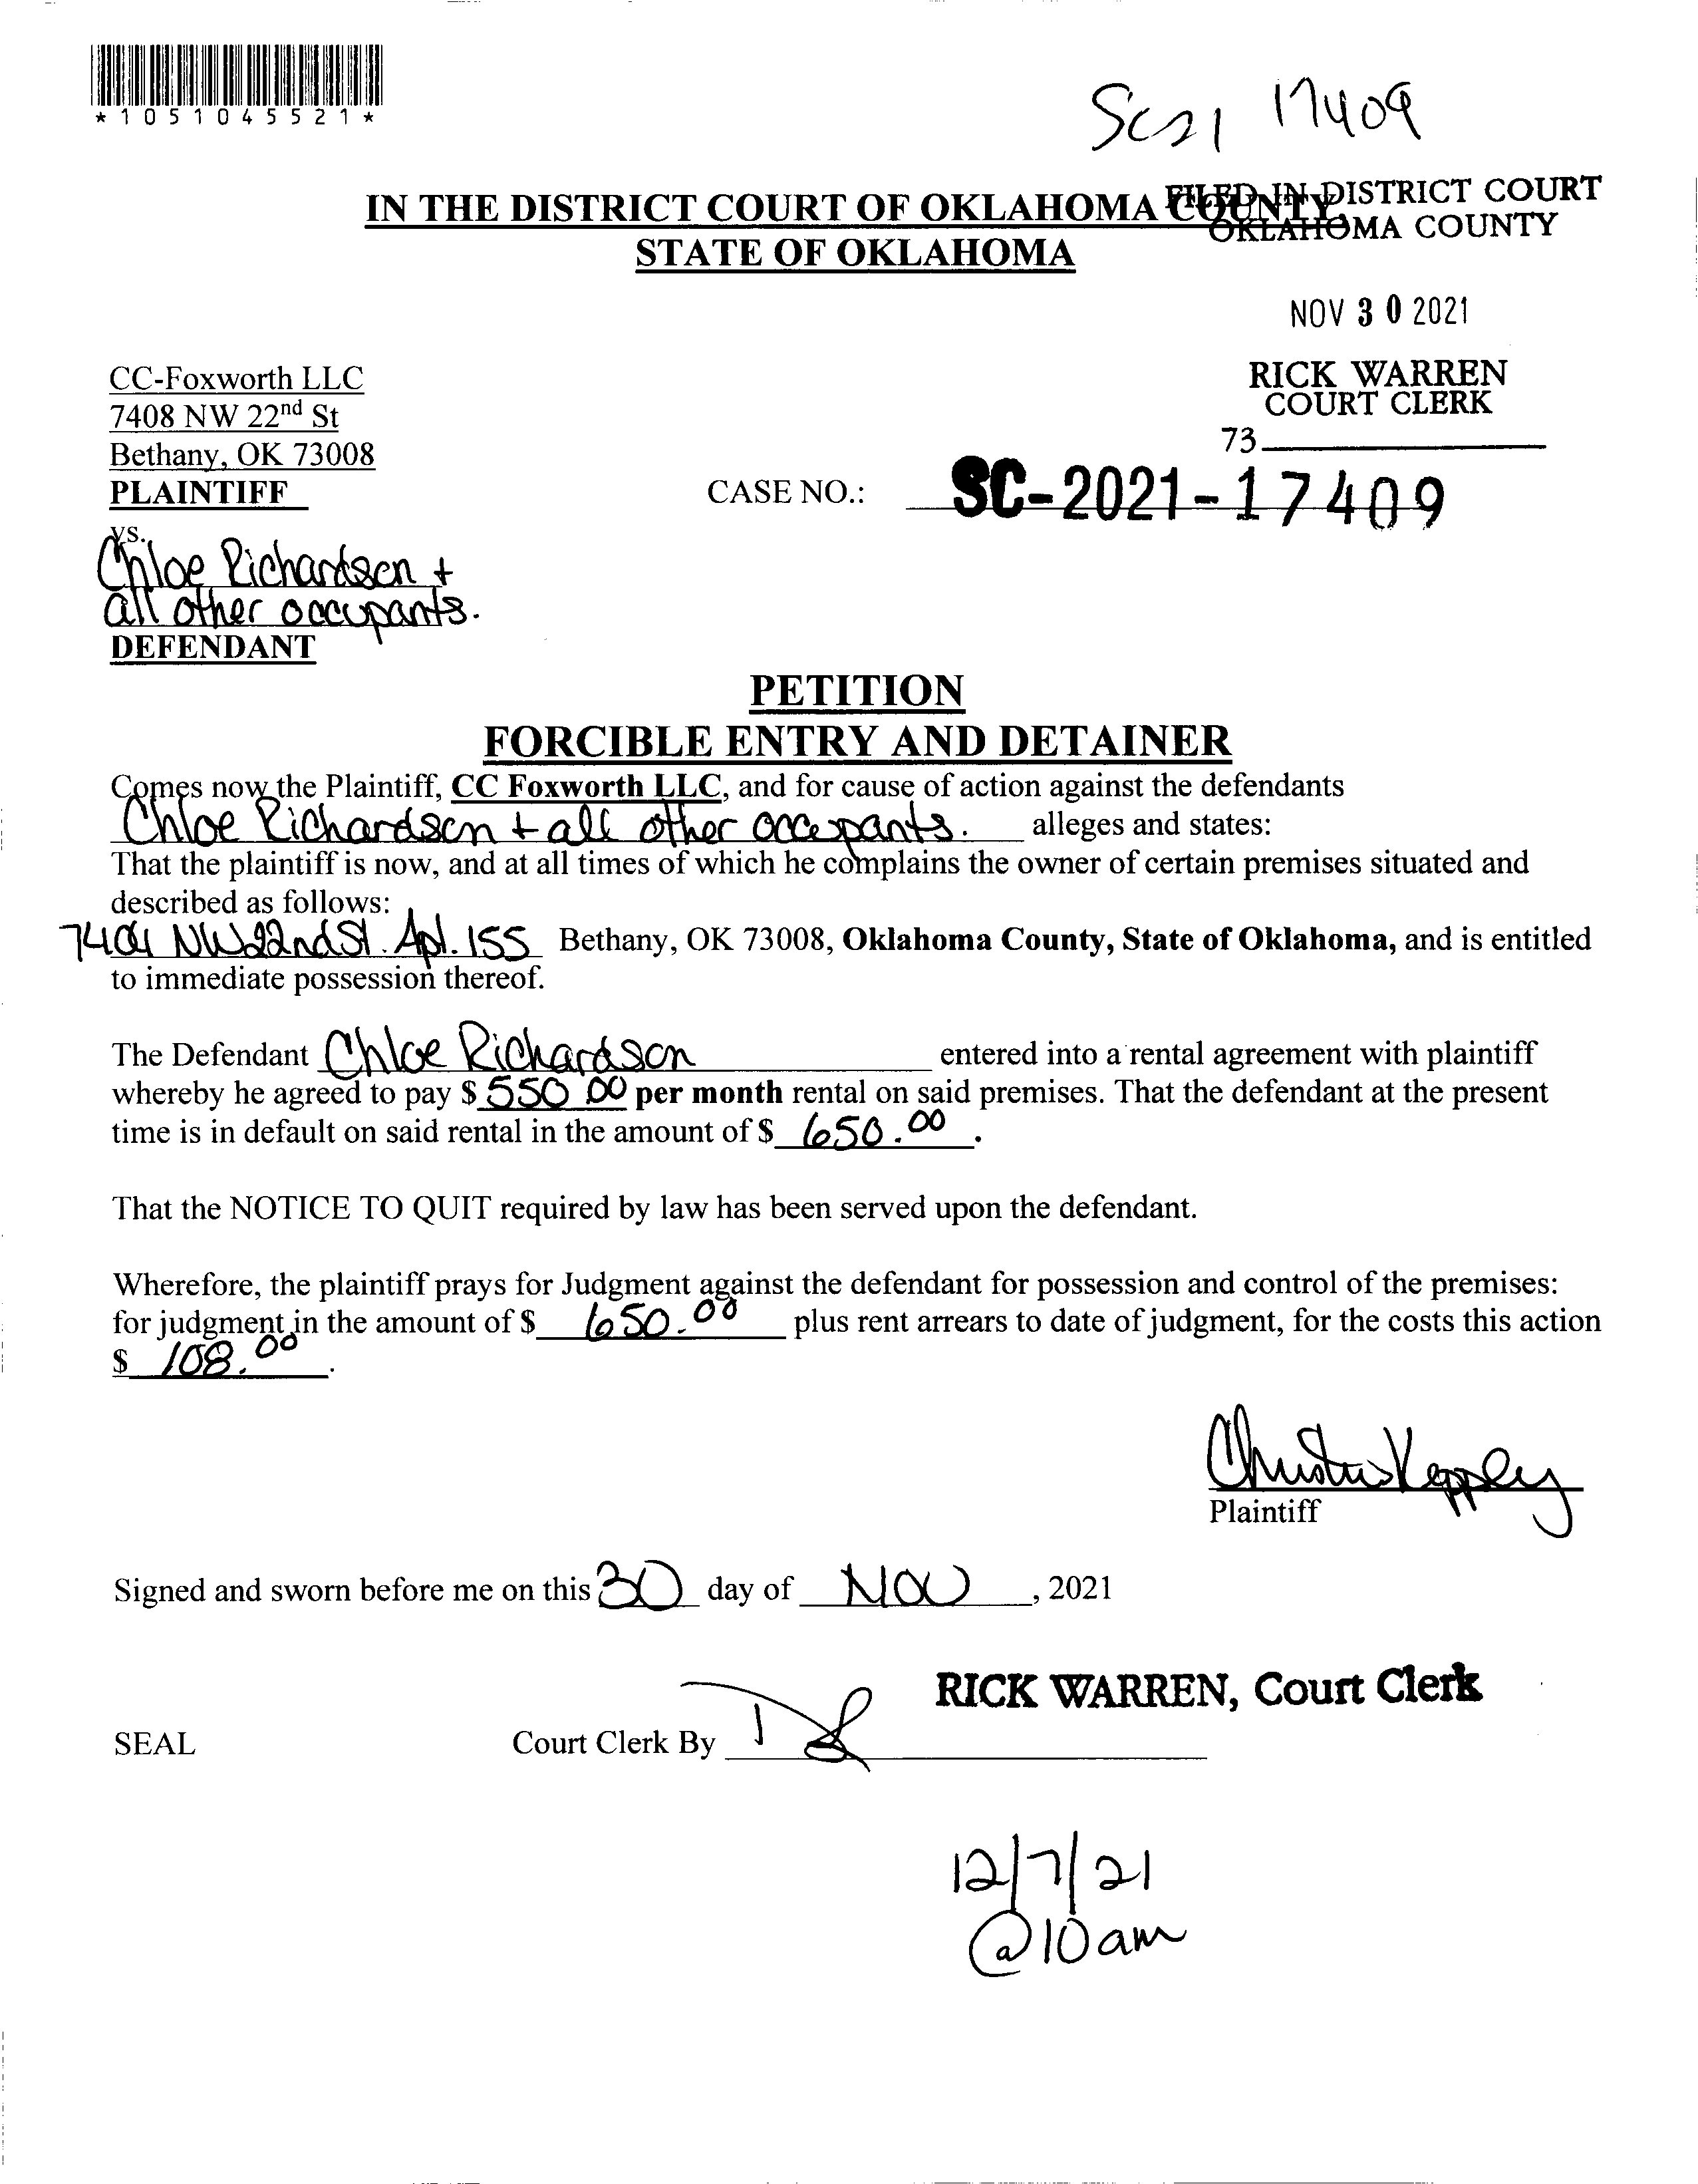 *1051045521*
SC21 17409
IN THE DISTRICT COURT OF OKLAHOMA COUNTY,
STATE OF OKLAHOMA
FILED IN DISTRICT COURT
OKLAHOMA COUNTY
NOV 30 2021
RICK WARREN
COURT CLERK
73
CC-Foxworth LLC
7408 NW 22nd St
Bethany, OK 73008
PLAINTIFF
CASE NO.: SC-2021-17409
vs.
Chloe Richardson +
all other occupants.
DEFENDANT
PETITION
FORCIBLE ENTRY AND DETAINER
Comes now the Plaintiff, CC Foxworth LLC, and for cause of action against the defendants
Chloe Richardson + all other occupants. alleges and states:
That the plaintiff is now, and at all times of which he complains the owner of certain premises situated and
described as follows:
7404 NW 22nd St. Apt. 155 Bethany, OK 73008, Oklahoma County, State of Oklahoma, and is entitled
to immediate possession thereof.
The Defendant Chloe Richardson entered into a rental agreement with plaintiff
whereby he agreed to pay $ 550.00 per month rental on said premises. That the defendant at the present
time is in default on said rental in the amount of $ 650.00.
That the NOTICE TO QUIT required by law has been served upon the defendant.
Wherefore, the plaintiff prays for Judgment against the defendant for possession and control of the premises:
for judgment in the amount of $ 650.00 plus rent arrears to date of judgment, for the costs this action
$ 108.00.
Plaintiff
Signed and sworn before me on this 30 day of NOV, 2021
RICK WARREN, Court Clerk
SEAL Court Clerk By
12/7/21
@10am